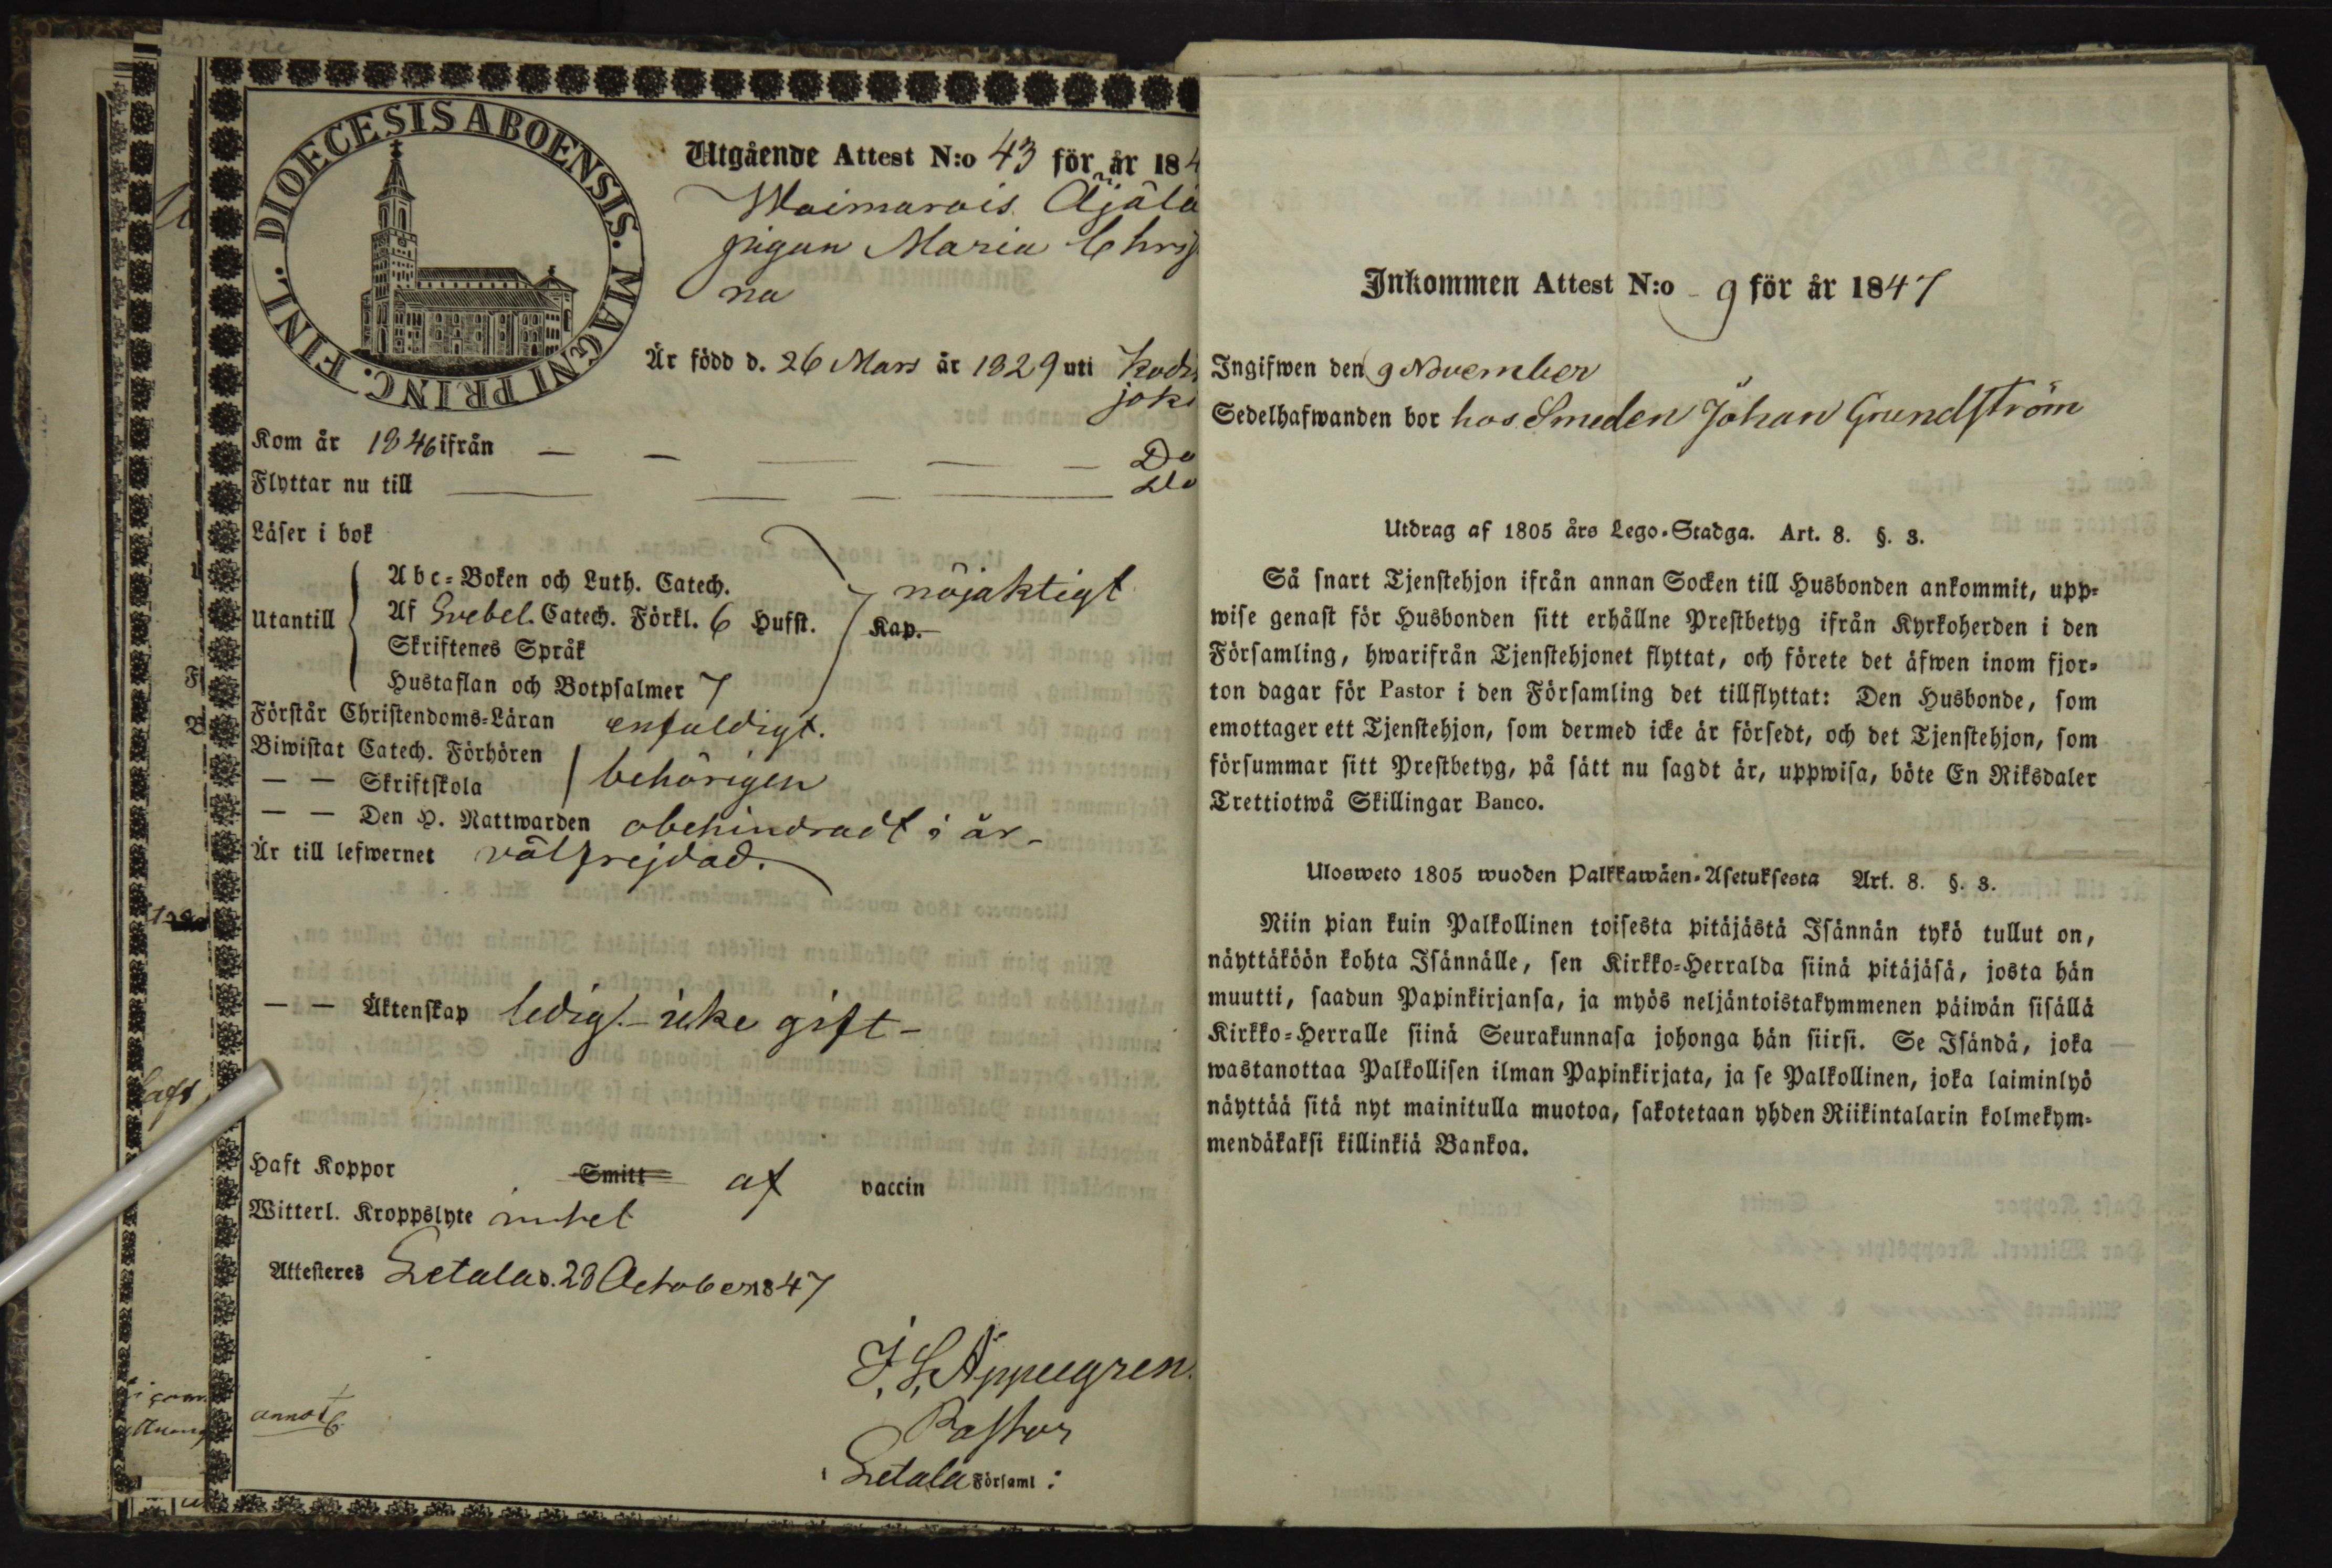 DIOECESIS ABOENSIS. MAGNI PRINC. FINL.
Utgående Attest N:o 43 för år 184
Waimarois Äjälä
pigan Maria Chris
na
Är född d. 26 Mars år 1829 uti Kodis
joki
Kom år 1846 ifrån — — — — — Do
Flyttar nu till — — — — Do
Läser i bok
Abc-Boken och Luth. Catech.
nöjaktigt
Utantill
Af Svebel. Catech. Förkl. 6 Hufst. Kap.
Skriftenes Språk
Hustaflan och Botpsalmer 7
Förstår Christendoms-Läran enfaldigt.
Biwistat Catech. Förhören
— — Skriftskola behörigen
— — Den H. Nattwarden obehindradt i år
Är till lefwernet välfrejdad.
— — Äktenskap ledig - icke gift -
Haft Koppor Smitt af vaccin
Witterl. Kroppslyte intet
Attesteres Letala d. 28 October 1847
J. L. Appelgren.
Pastor
Letala Församl:
annot
Inkommen Attest N:o 9 för år 1847
Ingifwen den 9 November
Sedelhafwanden bor hos Smeden Johan Grundström
Utdrag af 1805 års Lego-Stadga. Art. 8. §. 3.
Så snart Tjenstehjon ifrån annan Socken till Husbonden ankommit, upp-
wise genast för Husbonden sitt erhållne Prestbetyg ifrån Kyrkoherden i den
Församling, hwarifrån Tjenstehjonet flyttat, och förete det äfwen inom fjor-
ton dagar för Pastor i den Församling det tillflyttat: Den Husbonde, som
emottager ett Tjenstehjon, som dermed icke är försedt, och det Tjenstehjon, som
försummar sitt Prestbetyg, på sätt nu sagdt är, uppwisa, böte En Riksdaler
Trettiotwå Skillingar Banco.
Ulosweto 1805 wuoden Palkkawäen-Asetuksesta Art. 8. §. 3.
Niin pian kuin Palkollinen toisesta pitäjästä Isännän tykö tullut on,
näyttäköön kohta Isännälle, sen Kirkko-Herralda siinä pitäjäsä, josta hän
muutti, saadun Papinkirjansa, ja myös neljäntoistakymmenen päiwän sisällä
Kirkko-Herralle siinä Seurakunnasa johonga hän siirsi. Se Isändä, joka
wastanottaa Palkollisen ilman Papinkirjata, ja se Palkollinen, joka laiminlyö
näyttää sitä nyt mainitulla muotoa, sakotetaan yhden Riikintalarin kolmekym-
mendäkaksi killinkiä Bankoa.